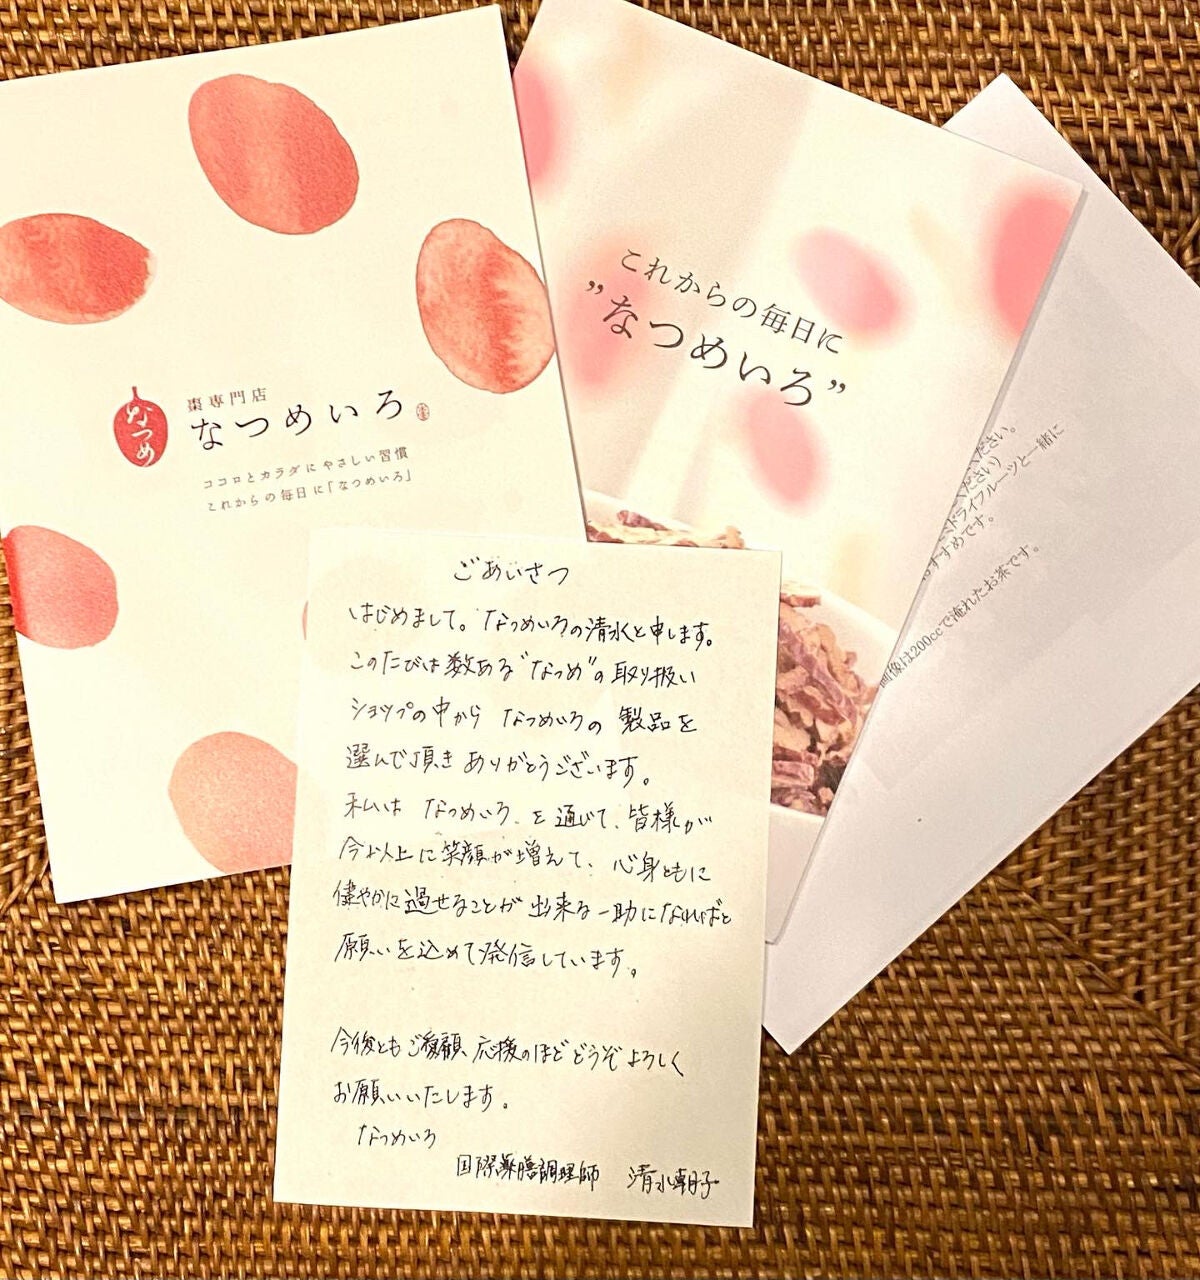 なつめ
棗専門店
なつめいろ
ココロとカラダにやさしい習慣
これからの毎日に「なつめいろ」
これからの毎日に
”なつめいろ”
ださい。
ください）
ドライフルーツと一緒に
おすすめです。
画像は200ccで淹れたお茶です。
ごあいさつ
はじめまして。なつめいろの清水と申します。
このたびは数ある“なつめ”の取り扱い
ショップの中から なつめいろの 製品を
選んで頂き ありがとうございます。
私は なつめいろ を通じて、皆様が
今以上に笑顔が増えて、心身ともに
健やかに過せることが出来る一助になればと
願いを込めて発信しています。
今後ともご愛顧、応援のほどどうぞよろしく
お願いいたします。
なつめいろ
国際薬膳調理師 清水朝子